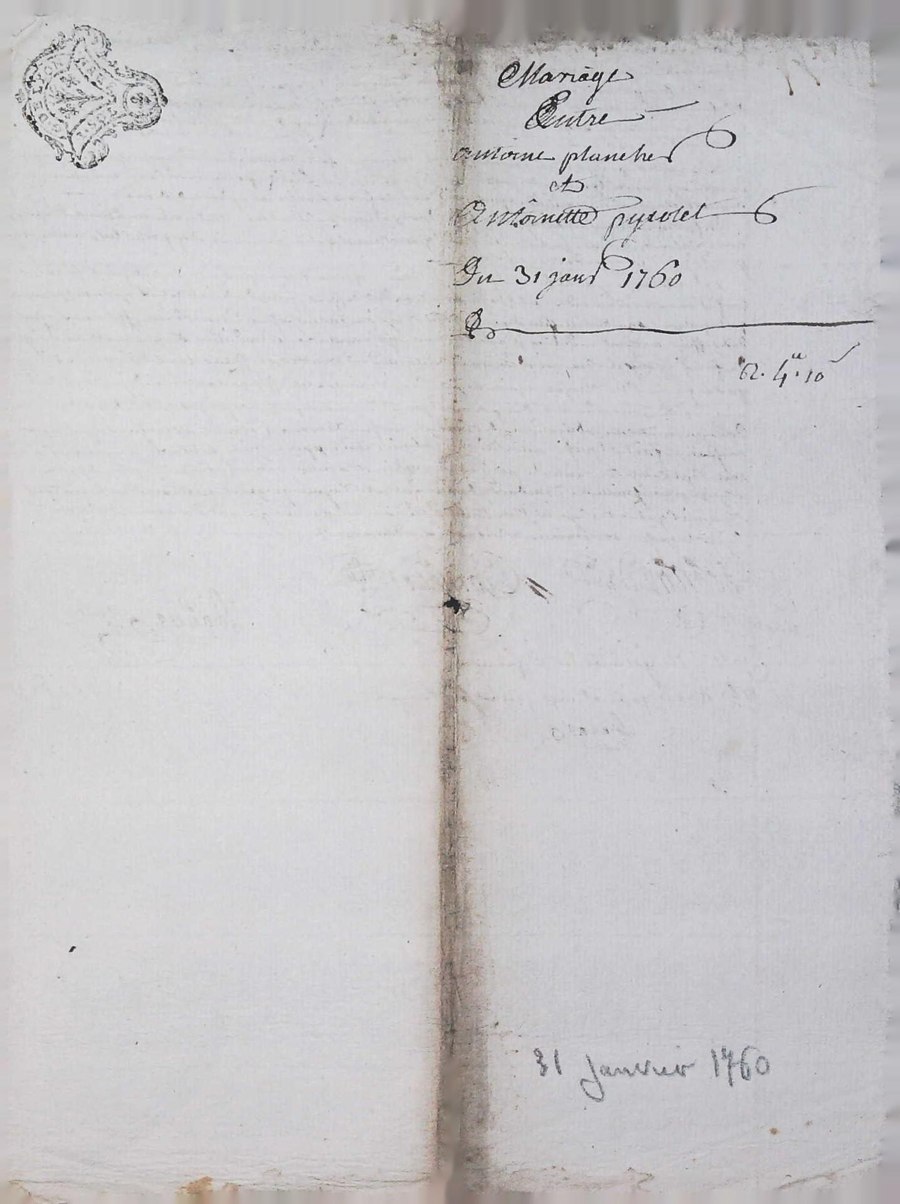 DE LION
Mariage
Entre
antoine planche
et
Antoînette pyzolet
Du 31 janr 1760
R. 4.tt 10
31 janvier 1760